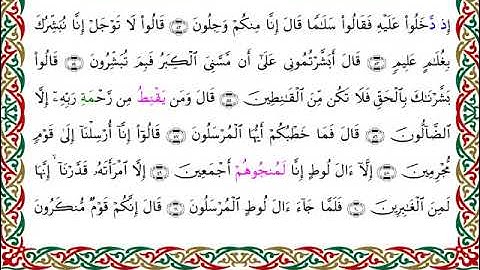 إِذ دَّخَلُوا۟ عَلَيْهِ فَقَالُوا۟ سَلَٰمًا قَالَ إِنَّا مِنكُمْ وَجِلُونَ ۝٥٢ قَالُوا۟ لَا تَوْجَلْ إِنَّا نُبَشِّرُكَ
بِغُلَٰمٍ عَلِيمٍ ۝٥٣ قَالَ أَبَشَّرْتُمُونِى عَلَىٰٓ أَن مَّسَّنِىَ ٱلْكِبَرُ فَبِمَ تُبَشِّرُونَ ۝٥٤ قَالُوا۟
بَشَّرْنَٰكَ بِٱلْحَقِّ فَلَا تَكُن مِّنَ ٱلْقَٰنِطِينَ ۝٥٥ قَالَ وَمَن يَقْنِطُ مِن رَّحْمَةِ رَبِّهِۦٓ إِلَّا
ٱلضَّآلُّونَ ۝٥٦ قَالَ فَمَا خَطْبُكُمْ أَيُّهَا ٱلْمُرْسَلُونَ ۝٥٧ قَالُوٓا۟ إِنَّآ أُرْسِلْنَآ إِلَىٰ قَوْمٍ
مُّجْرِمِينَ ۝٥٨ إِلَّآ ءَالَ لُوطٍ إِنَّا لَمُنجُوهُمْ أَجْمَعِينَ ۝٥٩ إِلَّا ٱمْرَأَتَهُۥ قَدَّرْنَآ ۙ إِنَّهَا
لَمِنَ ٱلْغَٰبِرِينَ ۝٦٠ فَلَمَّا جَآءَ ءَالَ لُوطٍ ٱلْمُرْسَلُونَ ۝٦١ قَالَ إِنَّكُمْ قَوْمٌ مُّنكَرُونَ